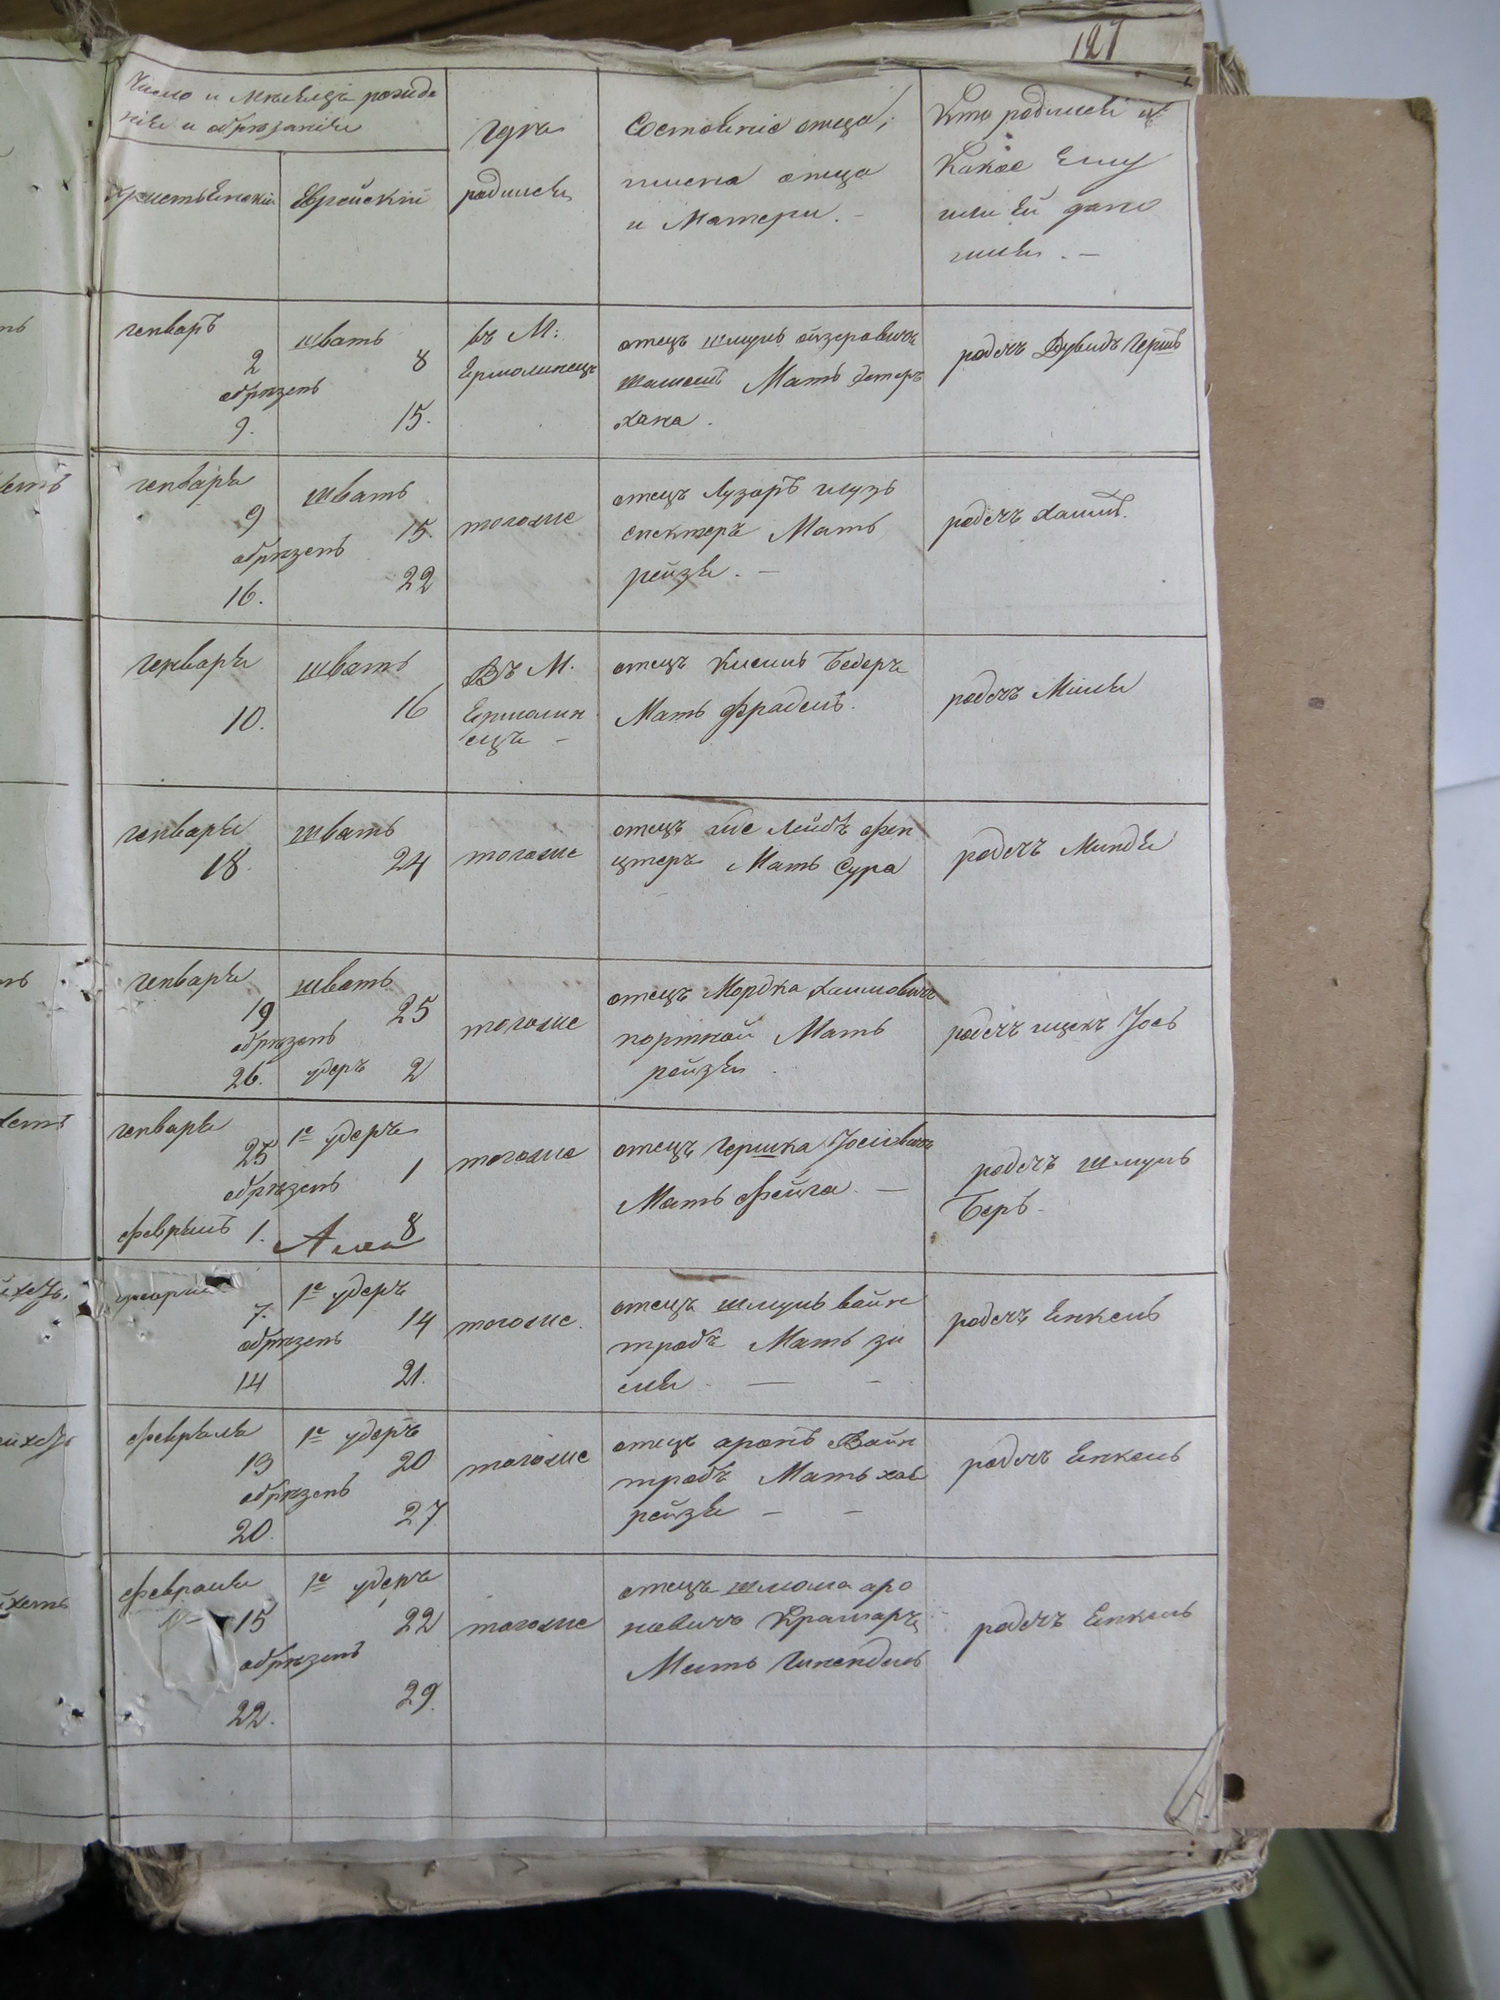 127
Число и мѣсяцъ рожде
нія и обрѣзанія
Христьянскій
Еврейскій
Гдѣ
родился
Состояніе отца,
имена отца
и Матери. -
Кто родился и
Какое Ему
или Ей дано
имя. -
генварь
2
обрѣзенъ
9.
шватъ
8
15.
въ М:
Ермолинецъ
отецъ Шмуль
Мать
хана.
родсъ Дувидъ Гершъ
генваря
9
обрѣзенъ
16.
шватъ
15.
22
тогоже
отецъ Лузаръ
спекторъ Мать
рейзя. -
родсъ Хаимъ.
генваря
10.
шватъ
16
Въ М.
Ермолин
ецъ -
отецъ Кисиль Бедеръ
Мать Фрадель.
родсъ
генваря
18.
шватъ
24
тогоже
отецъ Лейбъ фен
цтеръ Мать Сура
родсъ Миндя
генваря
19
обрѣзенъ
26.
шватъ
25
удеръ 2
тогоже
отецъ Мордка Хаимовичъ
портной Мать
рейзя
родсъ ицекъ Іось
генваря
25
обрѣзенъ
февраль 1.
1е удеръ
1
8
тогоже
отецъ Гершка Іосіовичъ
Мать Фейга. -
родсъ Шмуль
Беръ -
7.
обрѣзенъ
14
1е удеръ
14
21.
тогоже.
отецъ Шмуль вайн
тробъ Мать зи
сля - — -
родсъ Енкель
февраля
13
обрѣзенъ
20.
1е удеръ
20
27.
тогоже
отецъ аронъ Вайн
тробъ Мать хае
рейзя - -
родсъ Енкель
февраля
15
обрѣзенъ
22.
1е удеръ
22
29.
тогоже
отецъ Шлома аро
новичъ Крамаръ
Мать Гинендель
родсъ Енкель